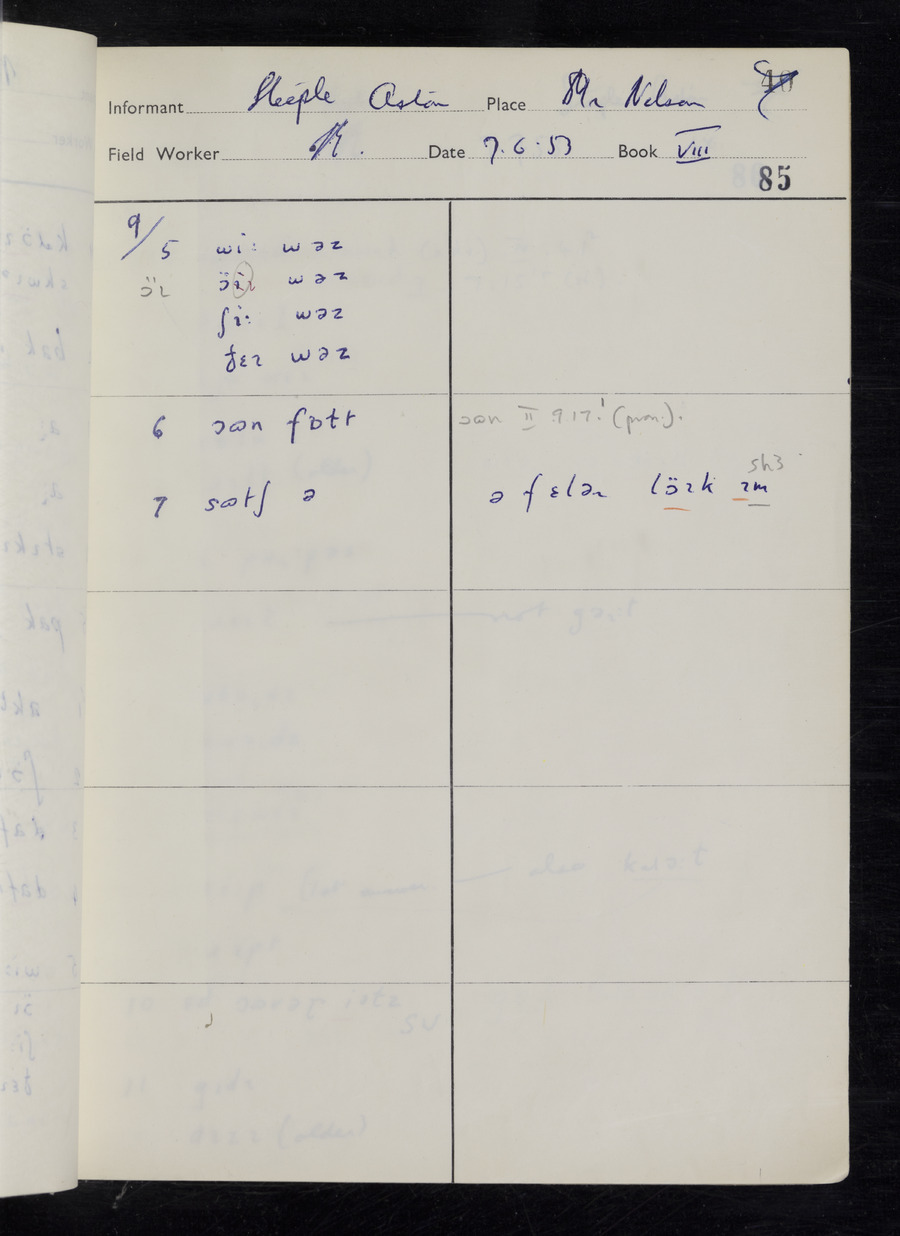 Informant Steeple Aston Place Mr Nelson
Field Worker Date 7.6.53 Book VIII
85
9/5 wiː wəz
ɔ̈ɪ ɔ̈ɪ wəz
ʃiː wəz
ðɛɪ wəz
6 ɔən fɒtt ɔən II 9.17.1 (pron.).
7 sətʃ ə ə fɛləɹ lɔ̈ɪk ɪm
sh3